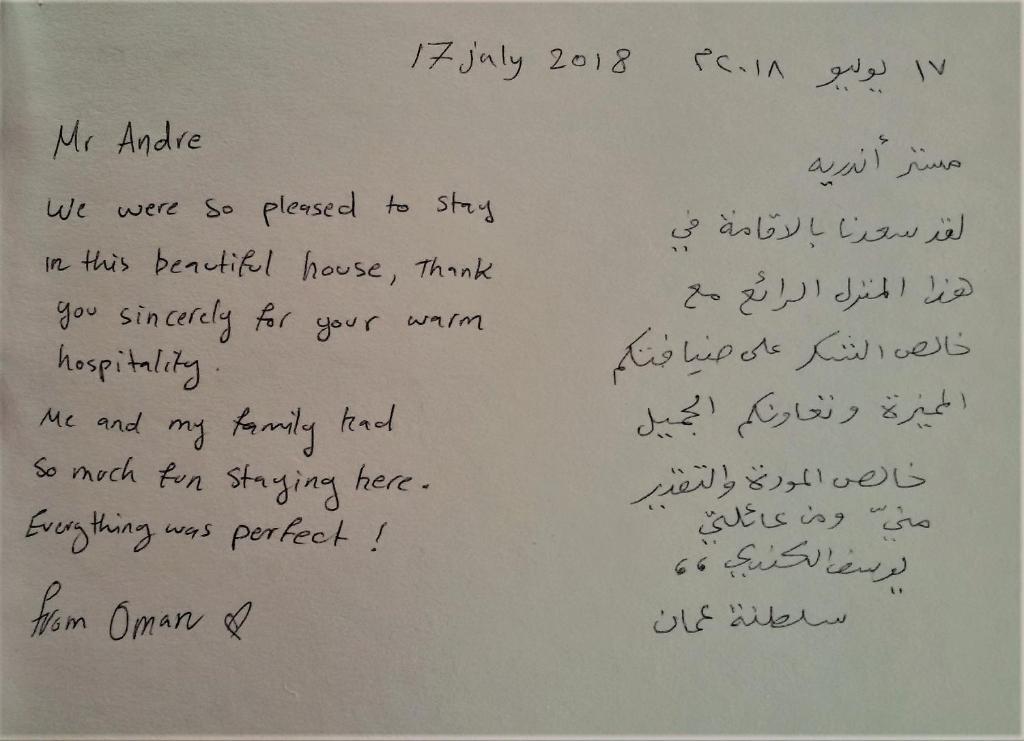 17 july 2018
١٧ يوليو ٢٠١٨م
Mr Andre
We were so pleased to stay
in this beautiful house, Thank
you sincerely for your warm
hospitality.
Me and my family had
so much fun staying here.
Everything was perfect !
from Oman ♡
مستر أندريه
لقد سعدنا بالاقامة في
هذا المنزل الرائع مع
خالص الشكر على ضيافتكم
المميزة وتعاونكم الجميل
خالص المودة والتقدير
منيّ ومن عائلتي
يوسف الكندي ،،
سلطنة عمان